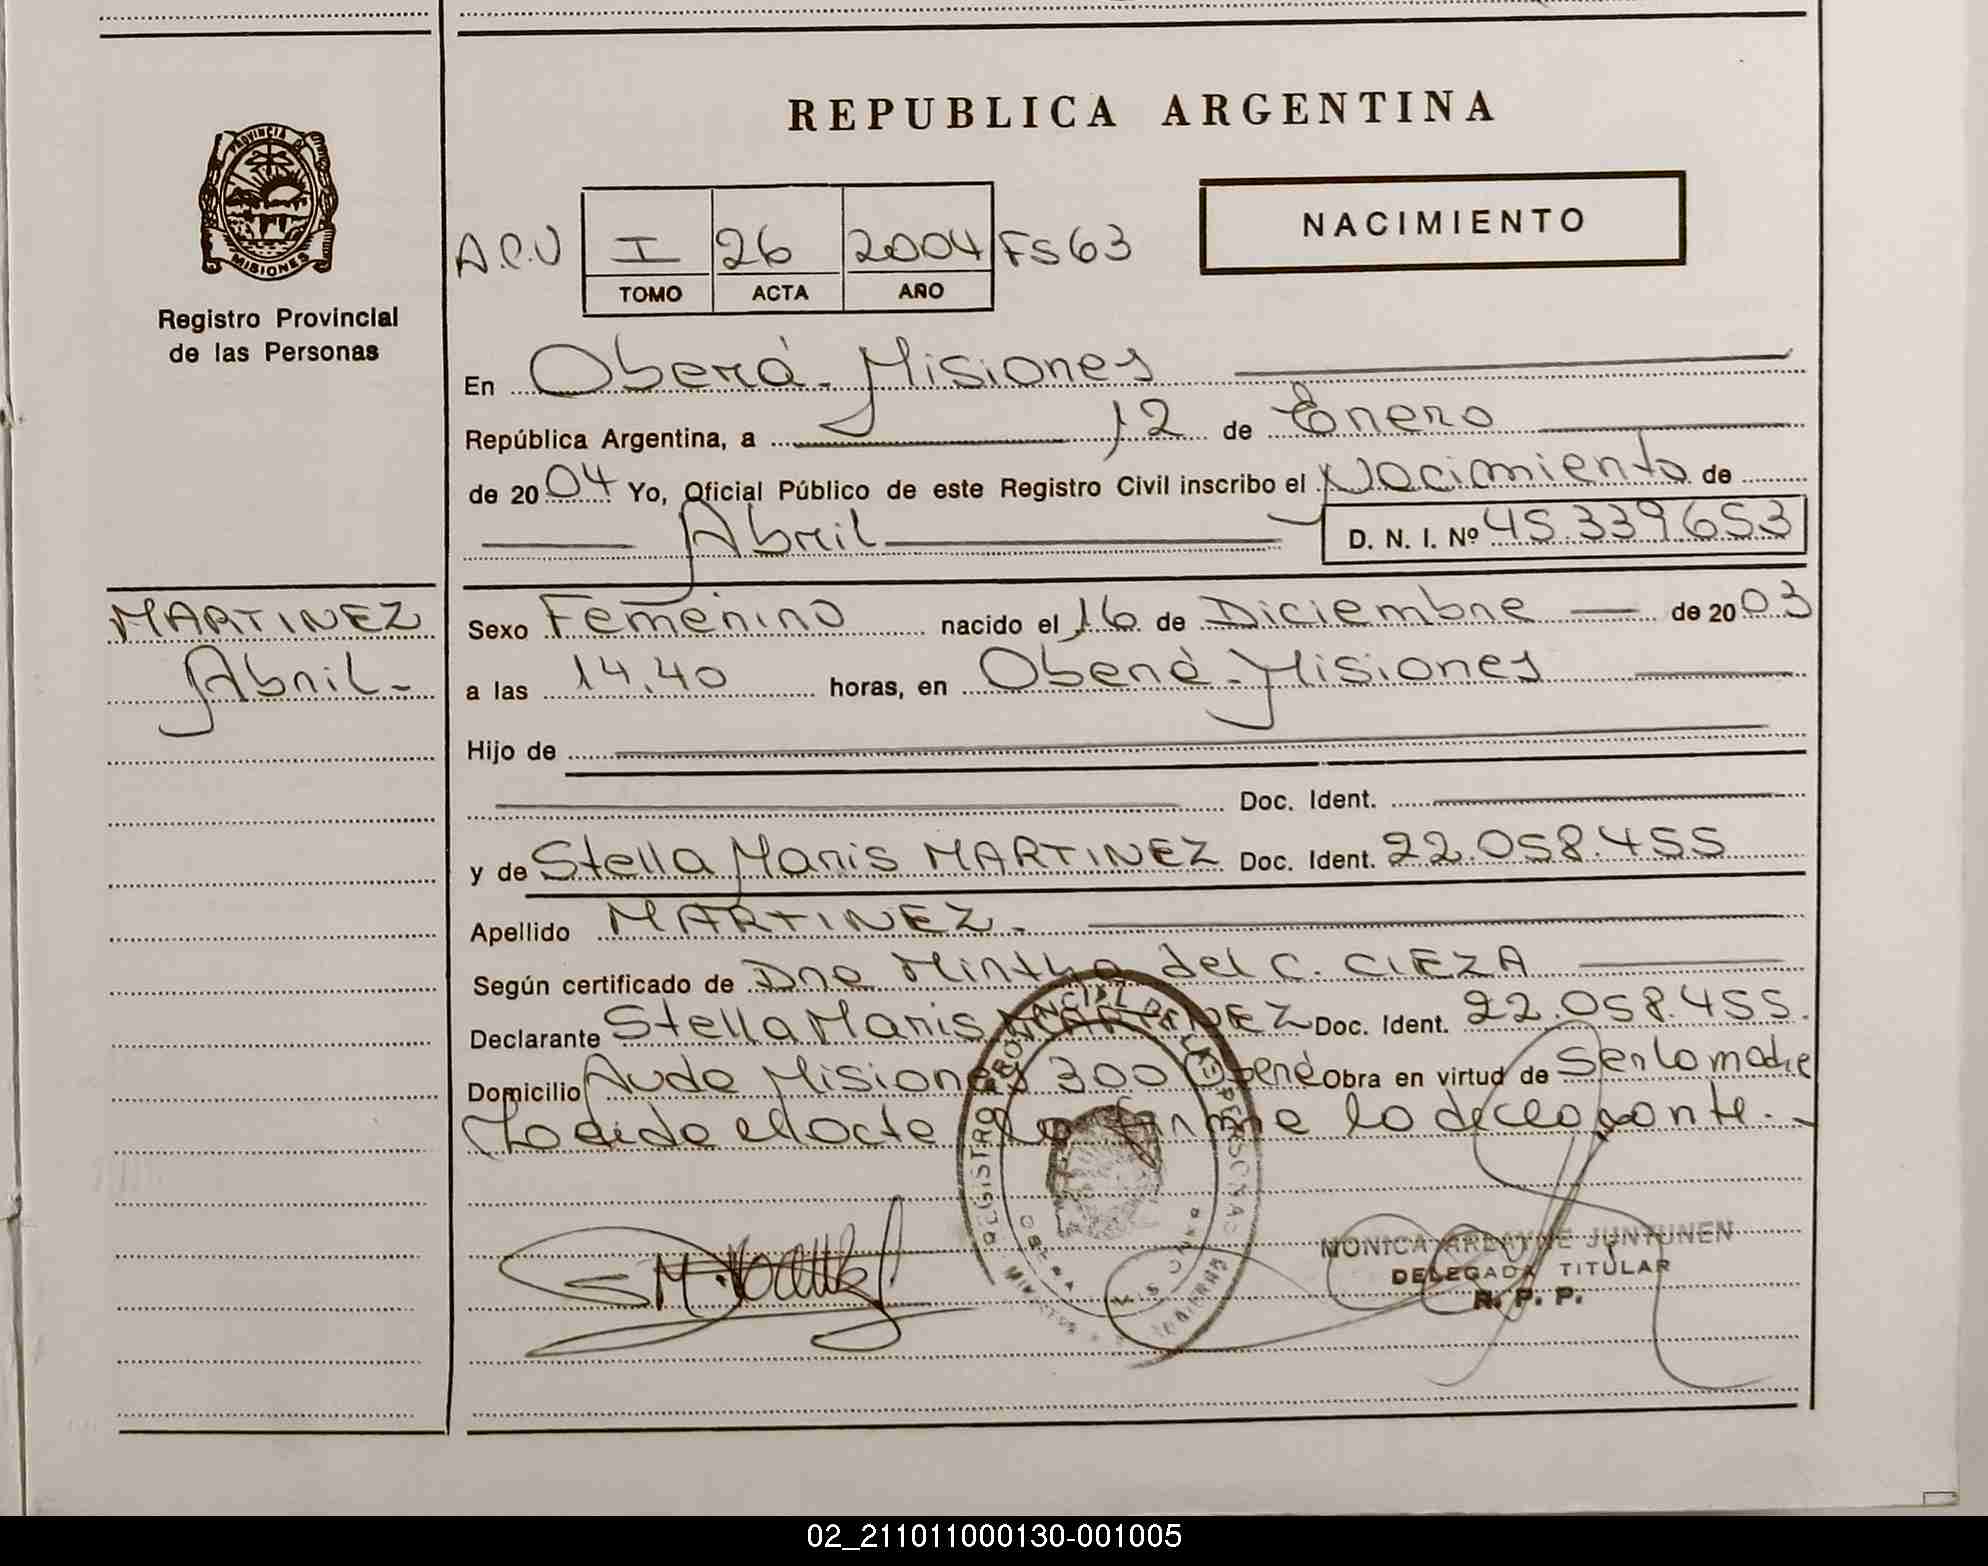 REPUBLICA ARGENTINA
PROVINCIA DE
MISIONES
Registro Provincial
de las Personas
NACIMIENTO
A.C.U I 26 2004 FS 63
TOMO ACTA AÑO
En Oberá - Misiones
República Argentina, a 12 de Enero
de 2004 Yo, Oficial Público de este Registro Civil inscribo el Nacimiento de
Abril D. N. I. Nº 45.339653
MARTINEZ
Abril-
Sexo Femenino nacido el 16 de Diciembre de 2003
a las 14,40 horas, en Oberá - Misiones
Hijo de
Doc. Ident.
y de Stella Maris MARTINEZ Doc. Ident. 22.058.455
Apellido MARTINEZ.
Según certificado de Dra Mirtha del C. CIEZA
Declarante Stella Maris MARTINEZ Doc. Ident. 22.058.455.
Domicilio Avda Misiones 300 Oberá Obra en virtud de Ser la madre
Leida el acta la firma la declarante.
REGISTRO PROVINCIAL DE LAS PERSONAS
OBERA
MONICA ARLAYNE JUNTUNEN
DELEGADA TITULAR
R. P. P.
02_211011000130-001005